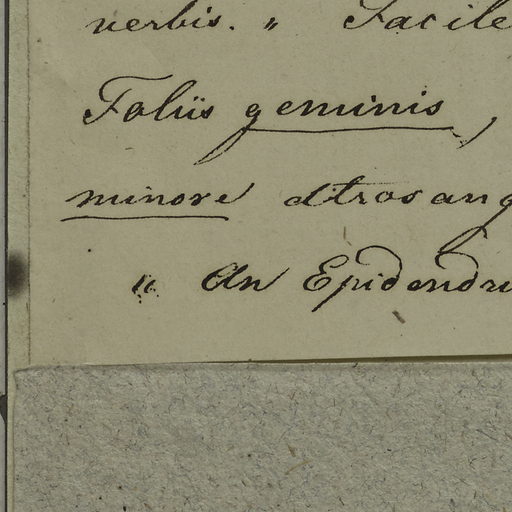 verbis. " Facile
Foliis geminis,
minore atrosang
" An Epidendru